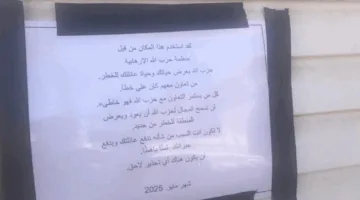 لقد استخدم هذا المكان من قبل
منظمة حزب الله الإرهابية
حزب الله يعرض حياتك وحياة عائلتك للخطر.
من تعاون معهم كان على خطأ.
كل من يستمر التعاون مع حزب الله فهو خاطئ.
لن نسمح المجال لحزب الله أن يعود ويعرض
المنطقة للخطر من جديد.
لا تكون أنت السبب من شأنه تدفع عائلتك ويدفع
جيرانك ثمنا باهظا.
لن يكون هناك أي تحذير لاحق.
شهر مايو 2025